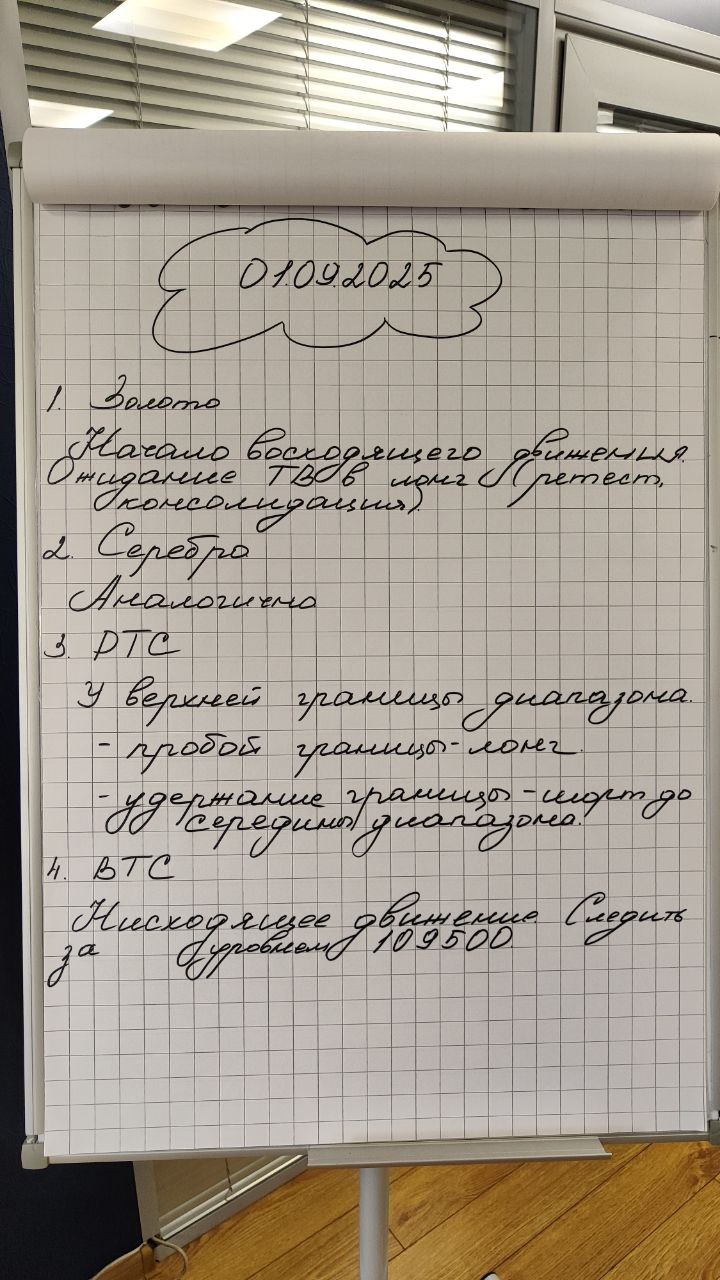 01.09.2025
1. Золото
Начало восходящего движения.
Ожидание ТВ в лонг (ретест,
консолидация).
2. Серебро
Аналогично
3. РТС
У верхней границы диапазона.
- пробой границы - лонг.
- удержание границы - шорт до
середины диапазона.
4. BTC
Нисходящее движение. Следить
за уровнем 109500.